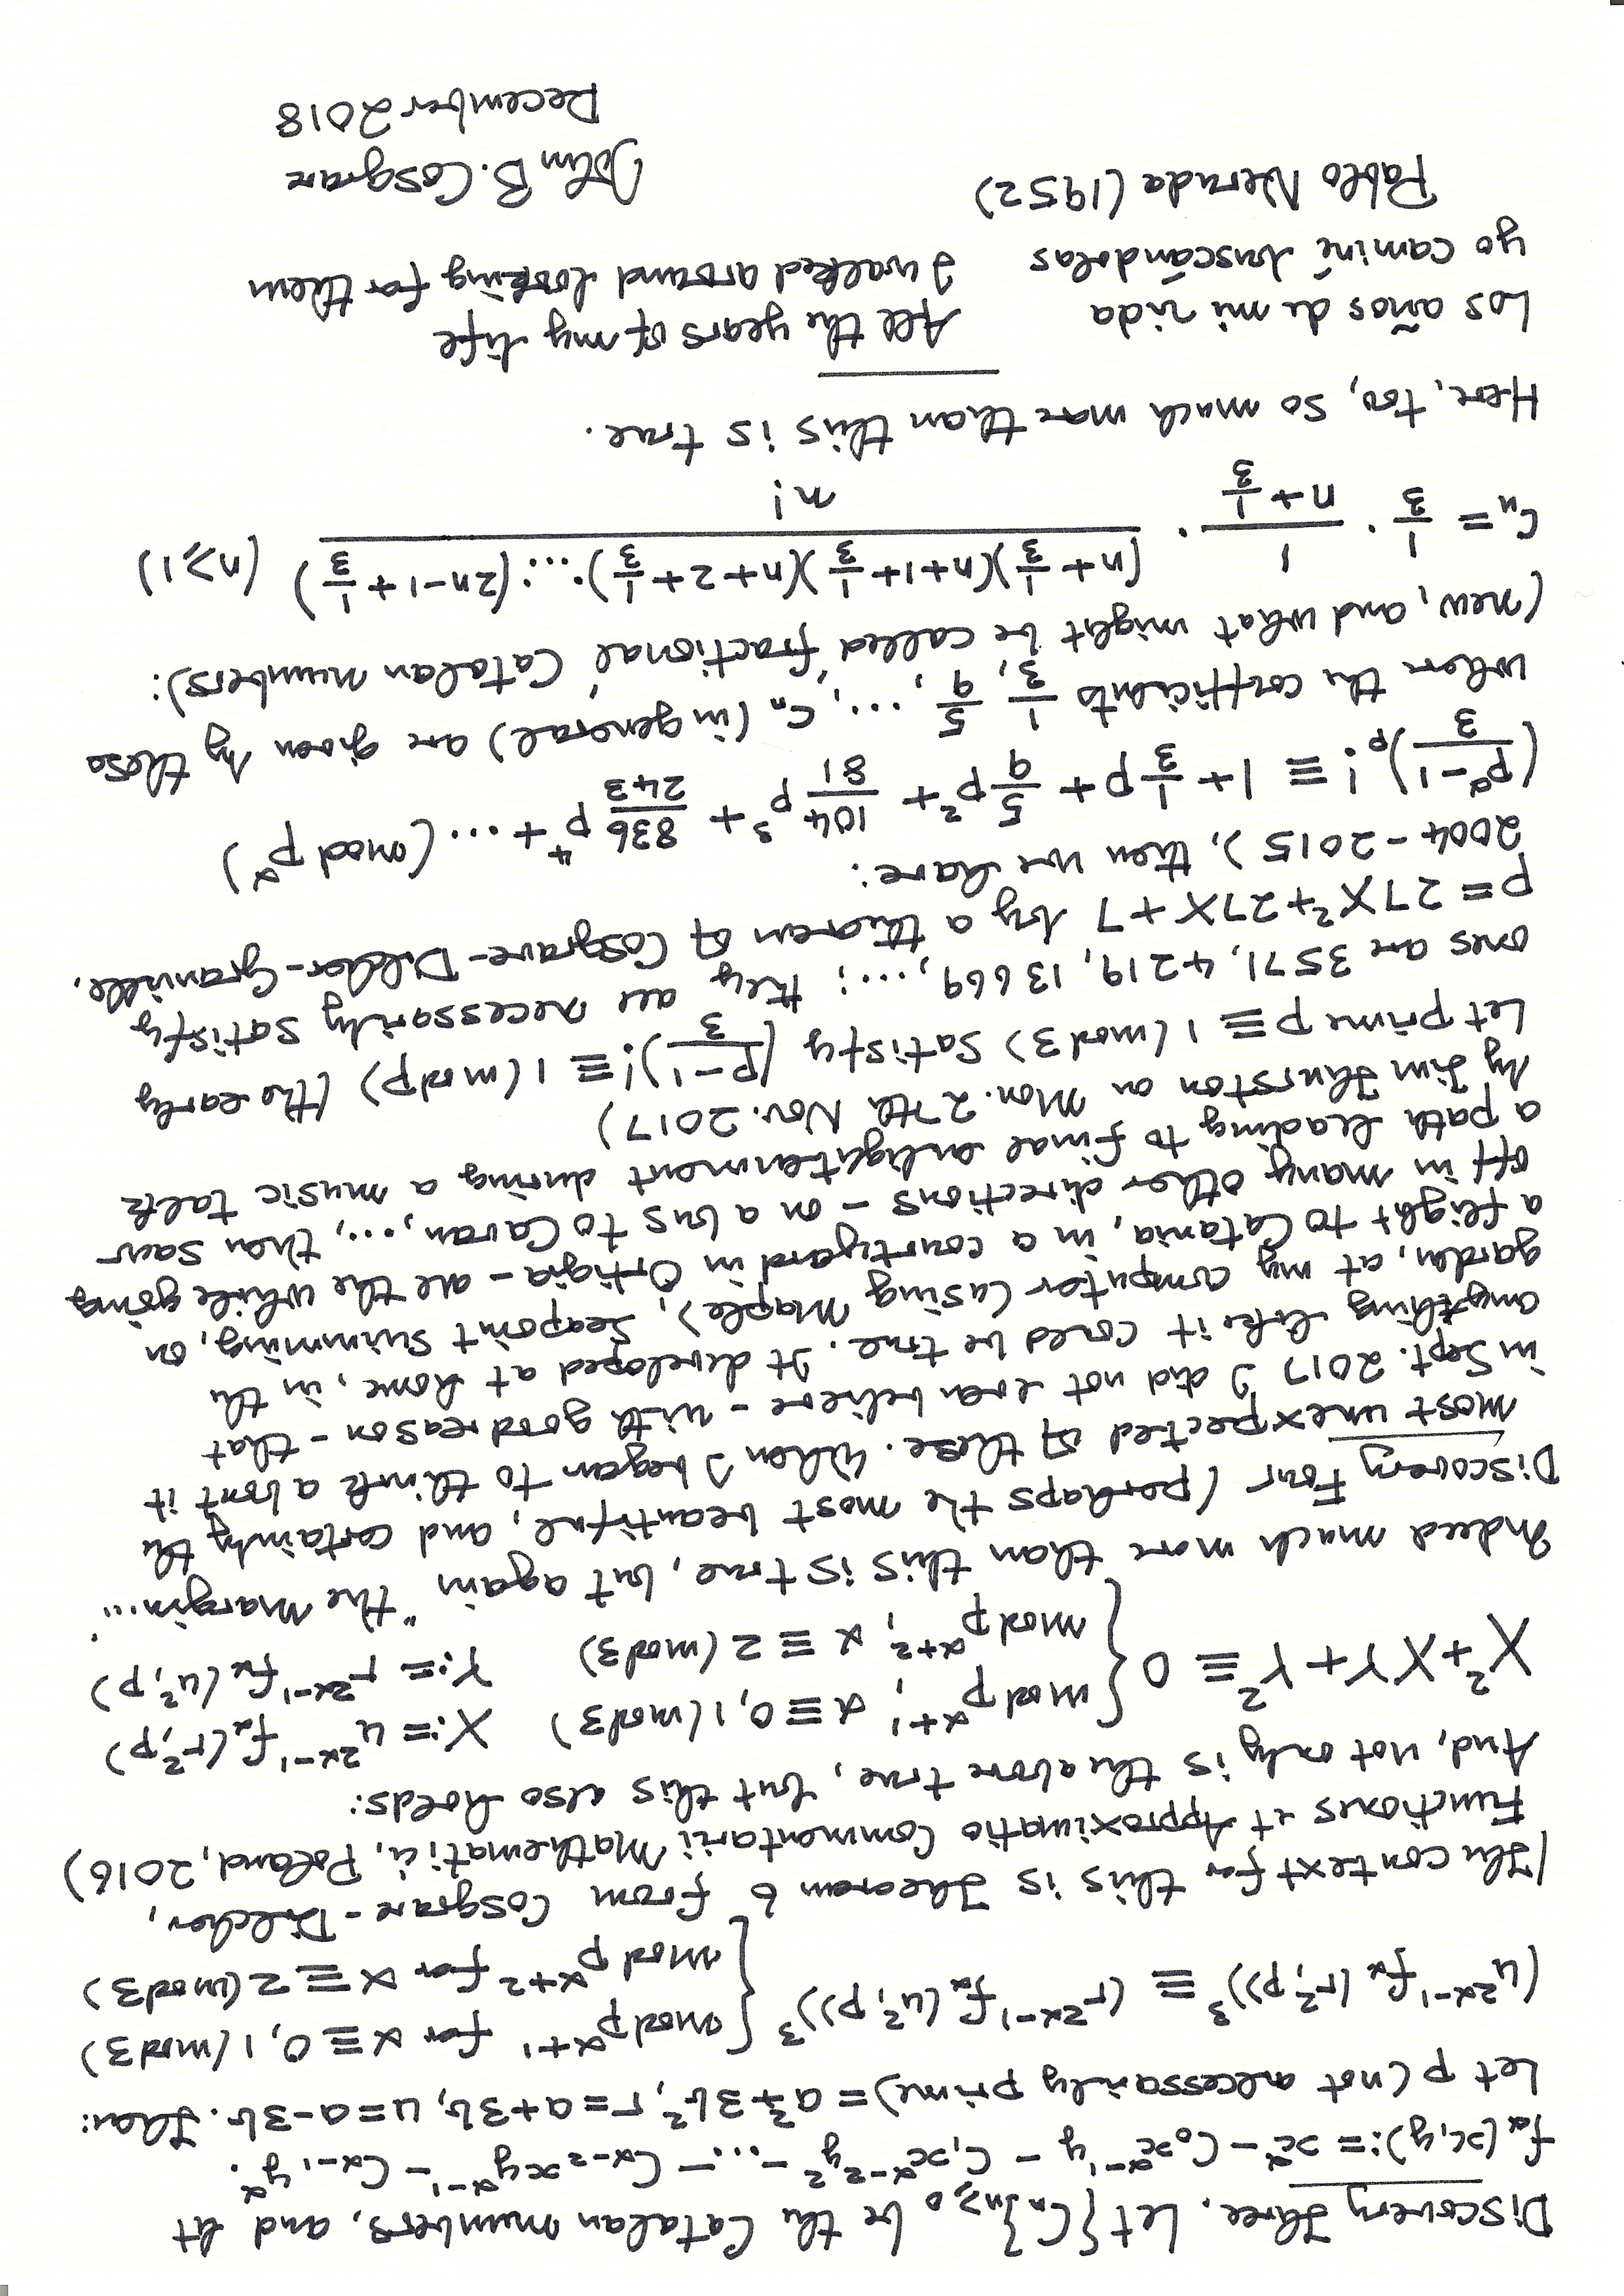 Discovery Three. Let {Cₙ}ₙ≥₀ be the Catalan numbers, and let
f_α(x,y):= x^α – C₀x^(α–1)y – C₁x^(α–2)y² – ... – C_(α–2)xy^(α–1) – C_(α–1)y^α.
Let p (not necessarily prime) = a²+3b², r=a+3b, u=a–3b. Then:
(u^(2α–1) f_α(r²,p))³ ≡ (r^(2α–1) f_α(u²,p))³ { mod p^(α+1) for α≡0,1 (mod 3)
mod p^(α+2) for α≡2 (mod 3)
(The context for this is Theorem 6 from Cosgrave-Dilcher,
Functiones et Approximatio Commentarii Mathematici, Poland, 2016)
And, not only is the above true, but this also holds:
X²+XY+Y² ≡ 0 { mod p^(α+1), α≡0,1 (mod 3) X:= u^(2α–1) f_α(r²,p)
mod p^(α+2), α≡2 (mod 3) Y:= r^(2α–1) f_α(u²,p)
Indeed much more than this is true, but again "the margin..."
Discovery Four (perhaps the most beautiful, and certainly the
most unexpected of these. When I began to think about it
in Sept. 2017 I did not even believe – with good reason – that
anything like it could be true. It developed at home, in the
garden, at my computer (using Maple), Seapoint swimming, on
a flight to Catania, in a courtyard in Ortigia – all the while going
off in many other directions – on a bus to Cavan, ..., then saw
a path leading to final enlightenment during a music talk
by Jim Thurston on Mon. 27th Nov. 2017)
Let prime p≡1 (mod 3) satisfy ((p–1)/3)! ≡ 1 (mod p) (the early
ones are 3571, 4219, 13669, ...; they all necessarily satisfy
p = 27X²+27X+7 by a theorem of Cosgrave-Dilcher-Granville,
2004–2015), then we have:
((p^α–1)/3)ₚ! ≡ 1 + 1/3 p + 5/9 p² + 104/81 p³ + 836/243 p⁴ + ... (mod p^α)
where the coefficients 1/3, 5/9, ..., cₙ (in general) are given by these
(new, and what might be called 'fractional' Catalan numbers):
cₙ = 1/3 · 1/(n+1/3) · (n+1/3)(n+1+1/3)(n+2+1/3)·...·(2n–1+1/3)/n! (n≥1)
Here, too, so much more than this is true.
Los años de mi vida
yo caminé buscándolas
Pablo Neruda (1952)
All the years of my life
I walked around looking for them
John B. Cosgrave
December 2018